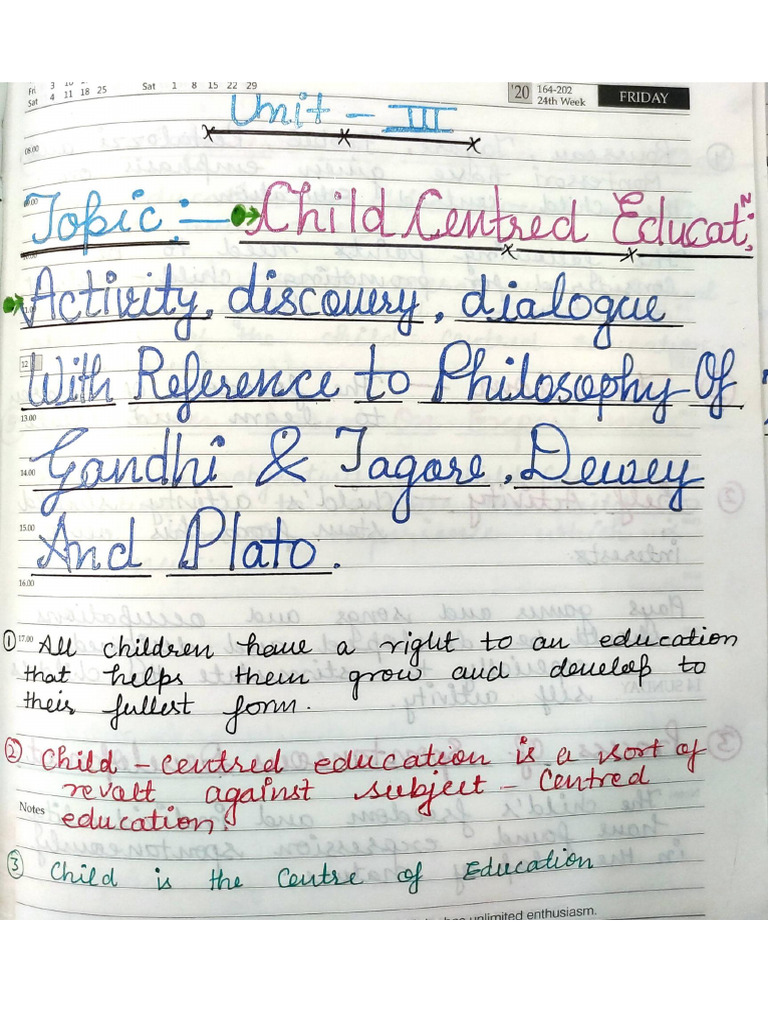 Fri 3 10
Sat 4 11 18 25
Sat 1 8 15 22 29
'20 164-202 24th Week FRIDAY
Unit - III
08.00
Topic :- Child Centred Educat.N
Activity, discovery, dialogue
12
With Reference to Philosophy Of
13.00
Gandhi & Tagore, Dewey
14.00
15.00
And Plato.
16.00
17.00
① All children have a right to an education
that helps them grow and develop to
their fullest form.
② Child - centred education is a sort of
revolt against subject - Centred
Notes
education.
③ Child is the Centre of Education
unlimited enthusiasm.